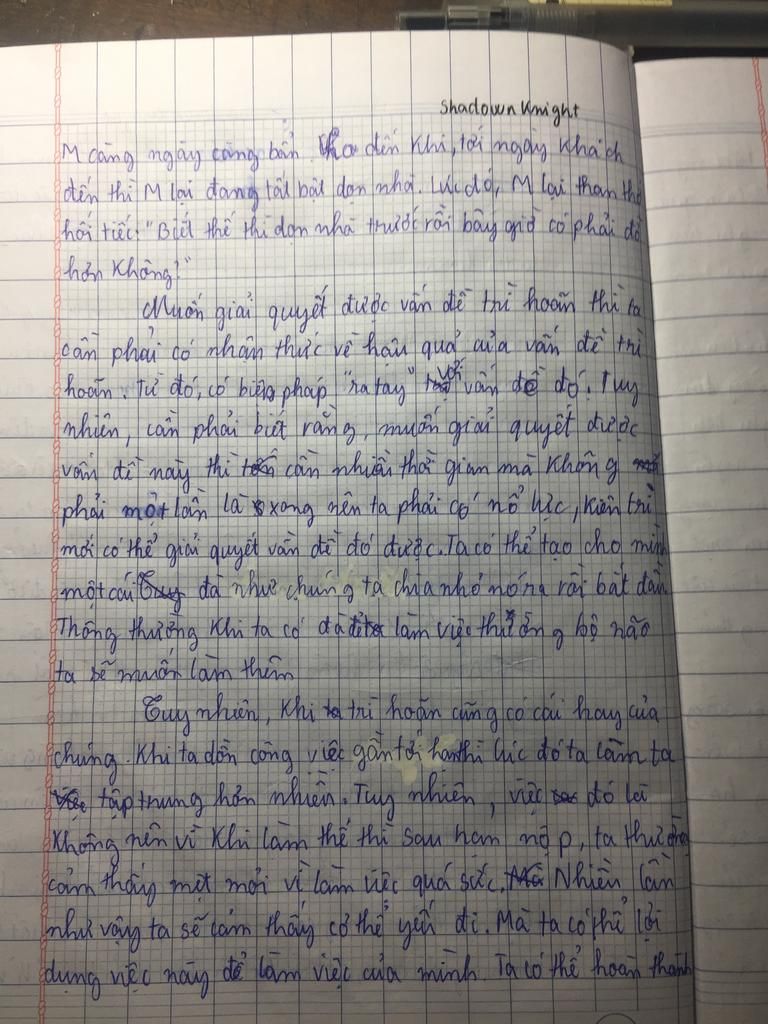 Shadown Knight
M càng ngày càng bẩn. Cho đến khi, tới ngày khách
đến thì M lại đang tất bật dọn nhà. Lúc đó, M lại than thở
hối tiếc: "Biết thế thì dọn nhà trước rồi bây giờ có phải đỡ
hơn không?"
Muốn giải quyết được vấn đề trì hoãn thì ta
cần phải có nhận thức về hậu quả của vấn đề trì
hoãn. Từ đó, có biện pháp "ra tay" với vấn đề đó. Tuy
nhiên, cần phải biết rằng, muốn giải quyết được
vấn đề này thì cần nhiều thời gian mà không
phải một lần là xong nên ta phải có nổ lực, kiên trì
mới có thể giải quyết vấn đề đó được. Ta có thể tạo cho mình
một cái đà như chúng ta chia nhỏ nó ra rồi bắt đầu.
Thông thường khi ta có đà làm việc thường bộ não
ta sẽ muốn làm thêm
Tuy nhiên, khi trì hoãn cũng có cái hay của
chúng. Khi ta dồn công việc gần tới hạn thì lúc đó ta làm ta
tập trung hơn nhiều. Tuy nhiên, việc đó là
không nên vì khi làm thế thì sau hạn nộp, ta thường
cảm thấy mệt mỏi vì làm việc quá sức. Nhiều lần
như vậy ta sẽ cảm thấy cơ thể yếu đi. Mà ta có thể lợi
dụng việc này để làm việc của mình. Ta có thể hoàn thành